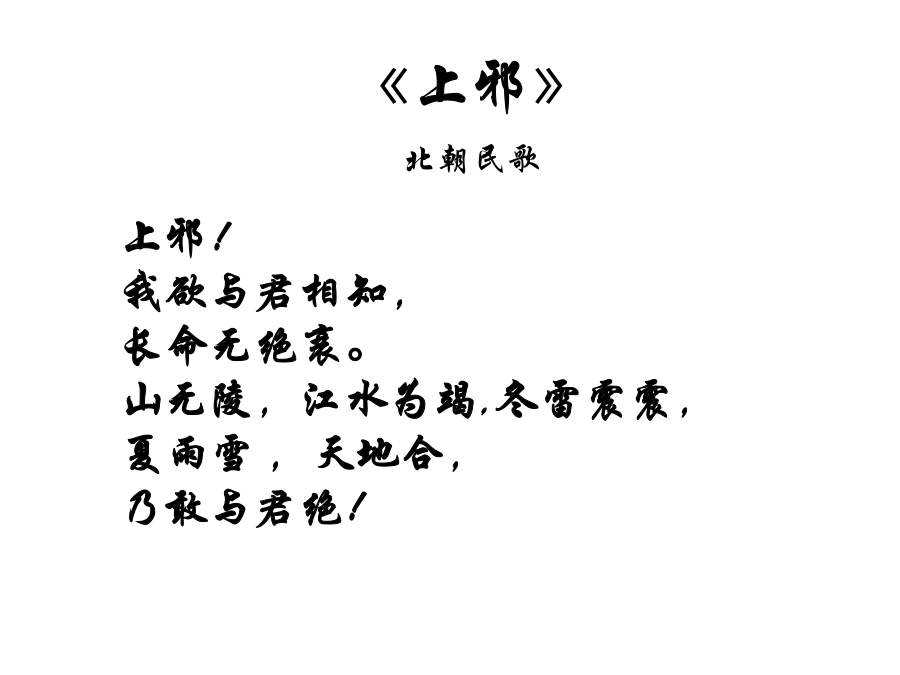 《上邪》
北朝民歌
上邪！
我欲与君相知，
长命无绝衰。
山无陵，江水为竭,冬雷震震，
夏雨雪，天地合，
乃敢与君绝！